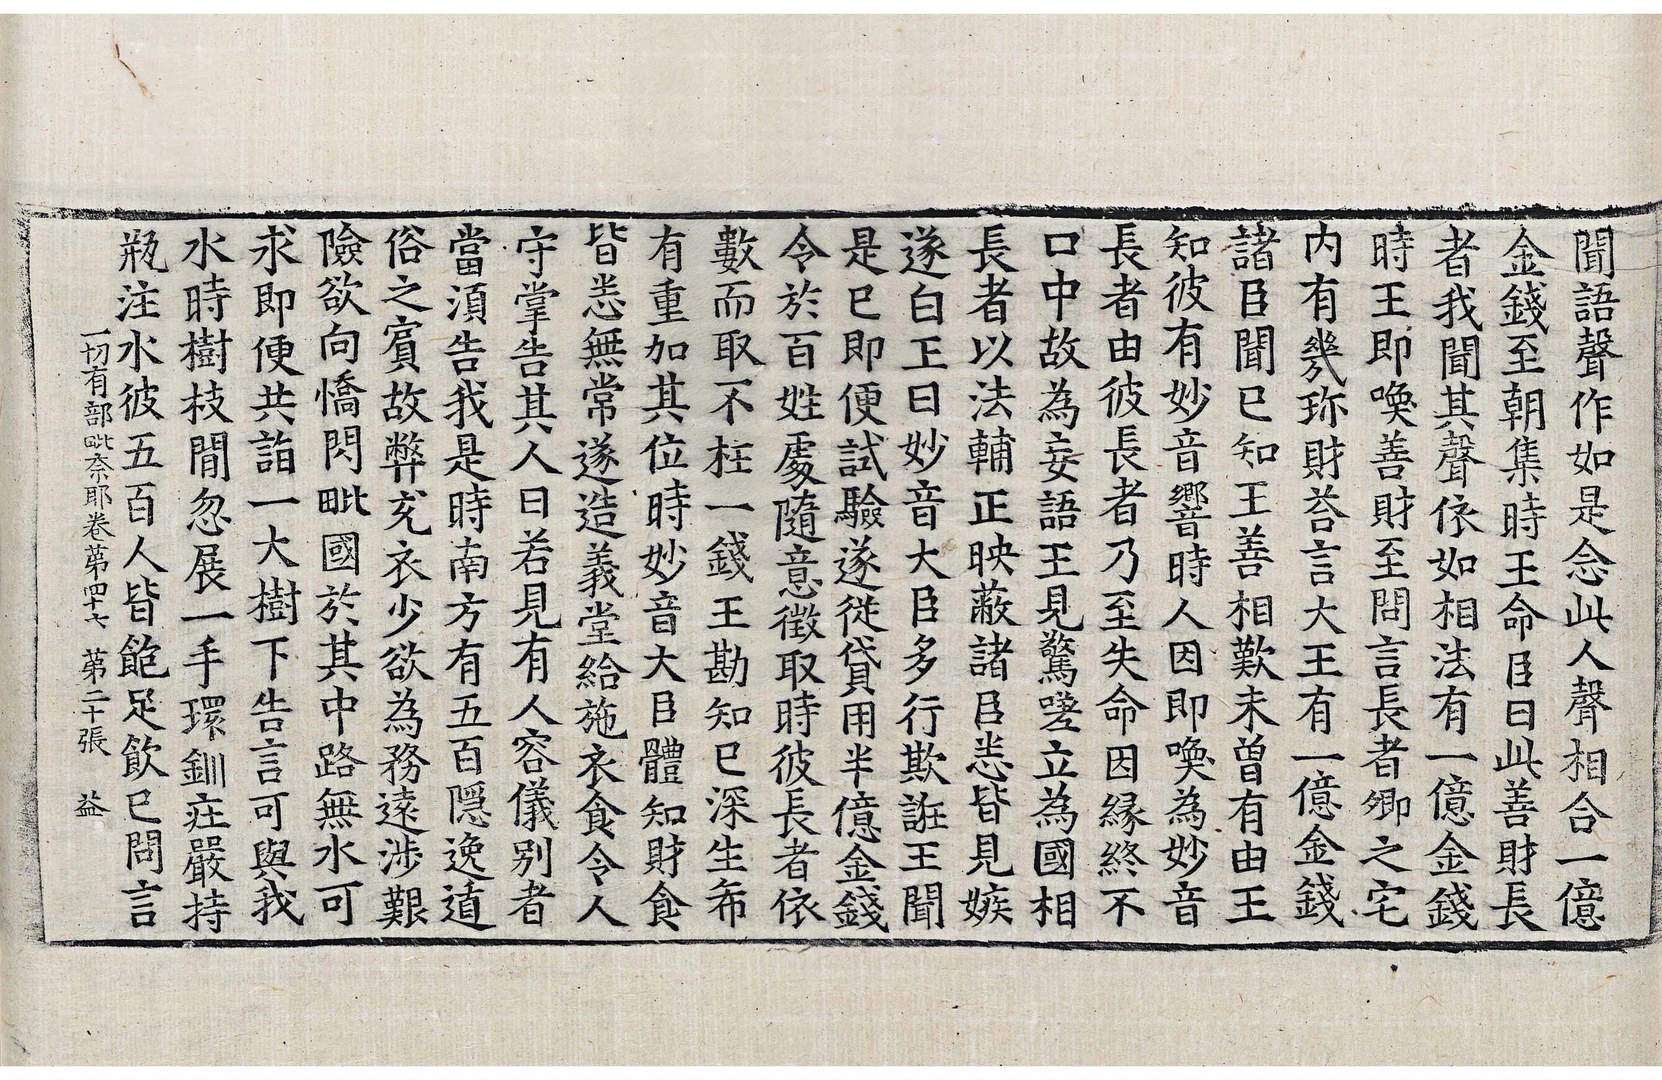 聞語聲作如是念此人聲相合一億
金錢至朝集時王命臣曰此善財長
者我聞其聲依如相法有一億金錢
時王即喚善財至問言長者卿之宅
内有幾珎財荅言大王有一億金錢
諸臣聞已知王善相歎未曾有由王
知彼有妙音響時人因即喚為妙音
長者由彼長者乃至失命因緣終不
口中故為妄語王見驚嗟立為國相
長者以法輔正映蔽諸臣悉皆見嫉
遂白王曰妙音大臣多行欺誑王聞
是已即便試驗遂從貸用半億金錢
令於百姓處隨意徵取時彼長者依
數而取不枉一錢王勘知已深生希
有重加其位時妙音大臣體知財食
皆悉無常遂造義堂給施衣食令人
守掌告其人曰若見有人容儀別者
當須告我是時南方有五百隱逸道
俗之賓故弊充衣少欲為務遠涉艱
險欲向憍閃毗國於其中路無水可
求即便共詣一大樹下告言可與我
水時樹枝間忽展一手環釧莊嚴持
瓶注水彼五百人皆飽足飲已問言
一切有部毗奈耶卷第四十七　第二十張　益